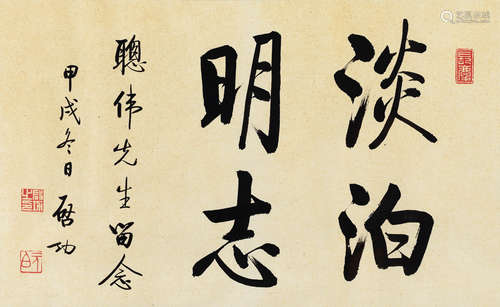 淡泊
明志
聰伟先生留念
甲戌冬日 启功